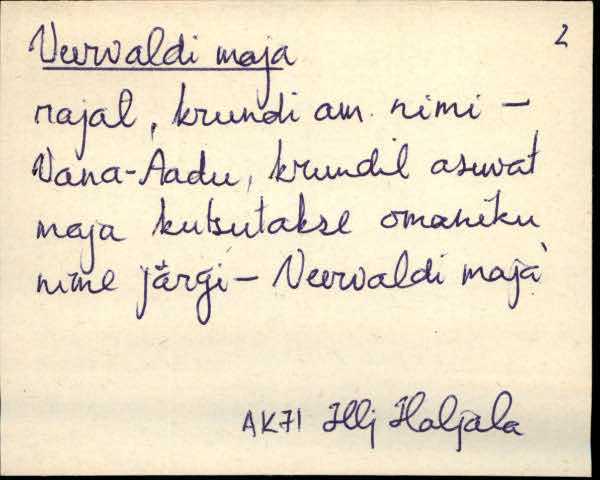 Veervaldi maja 2
rajal, krundi am. nimi –
Vana-Aadu, krundil asuvat
maja kutsutakse omaniku
nime järgi – Veervaldi maja
AK71 Hlj Haljala